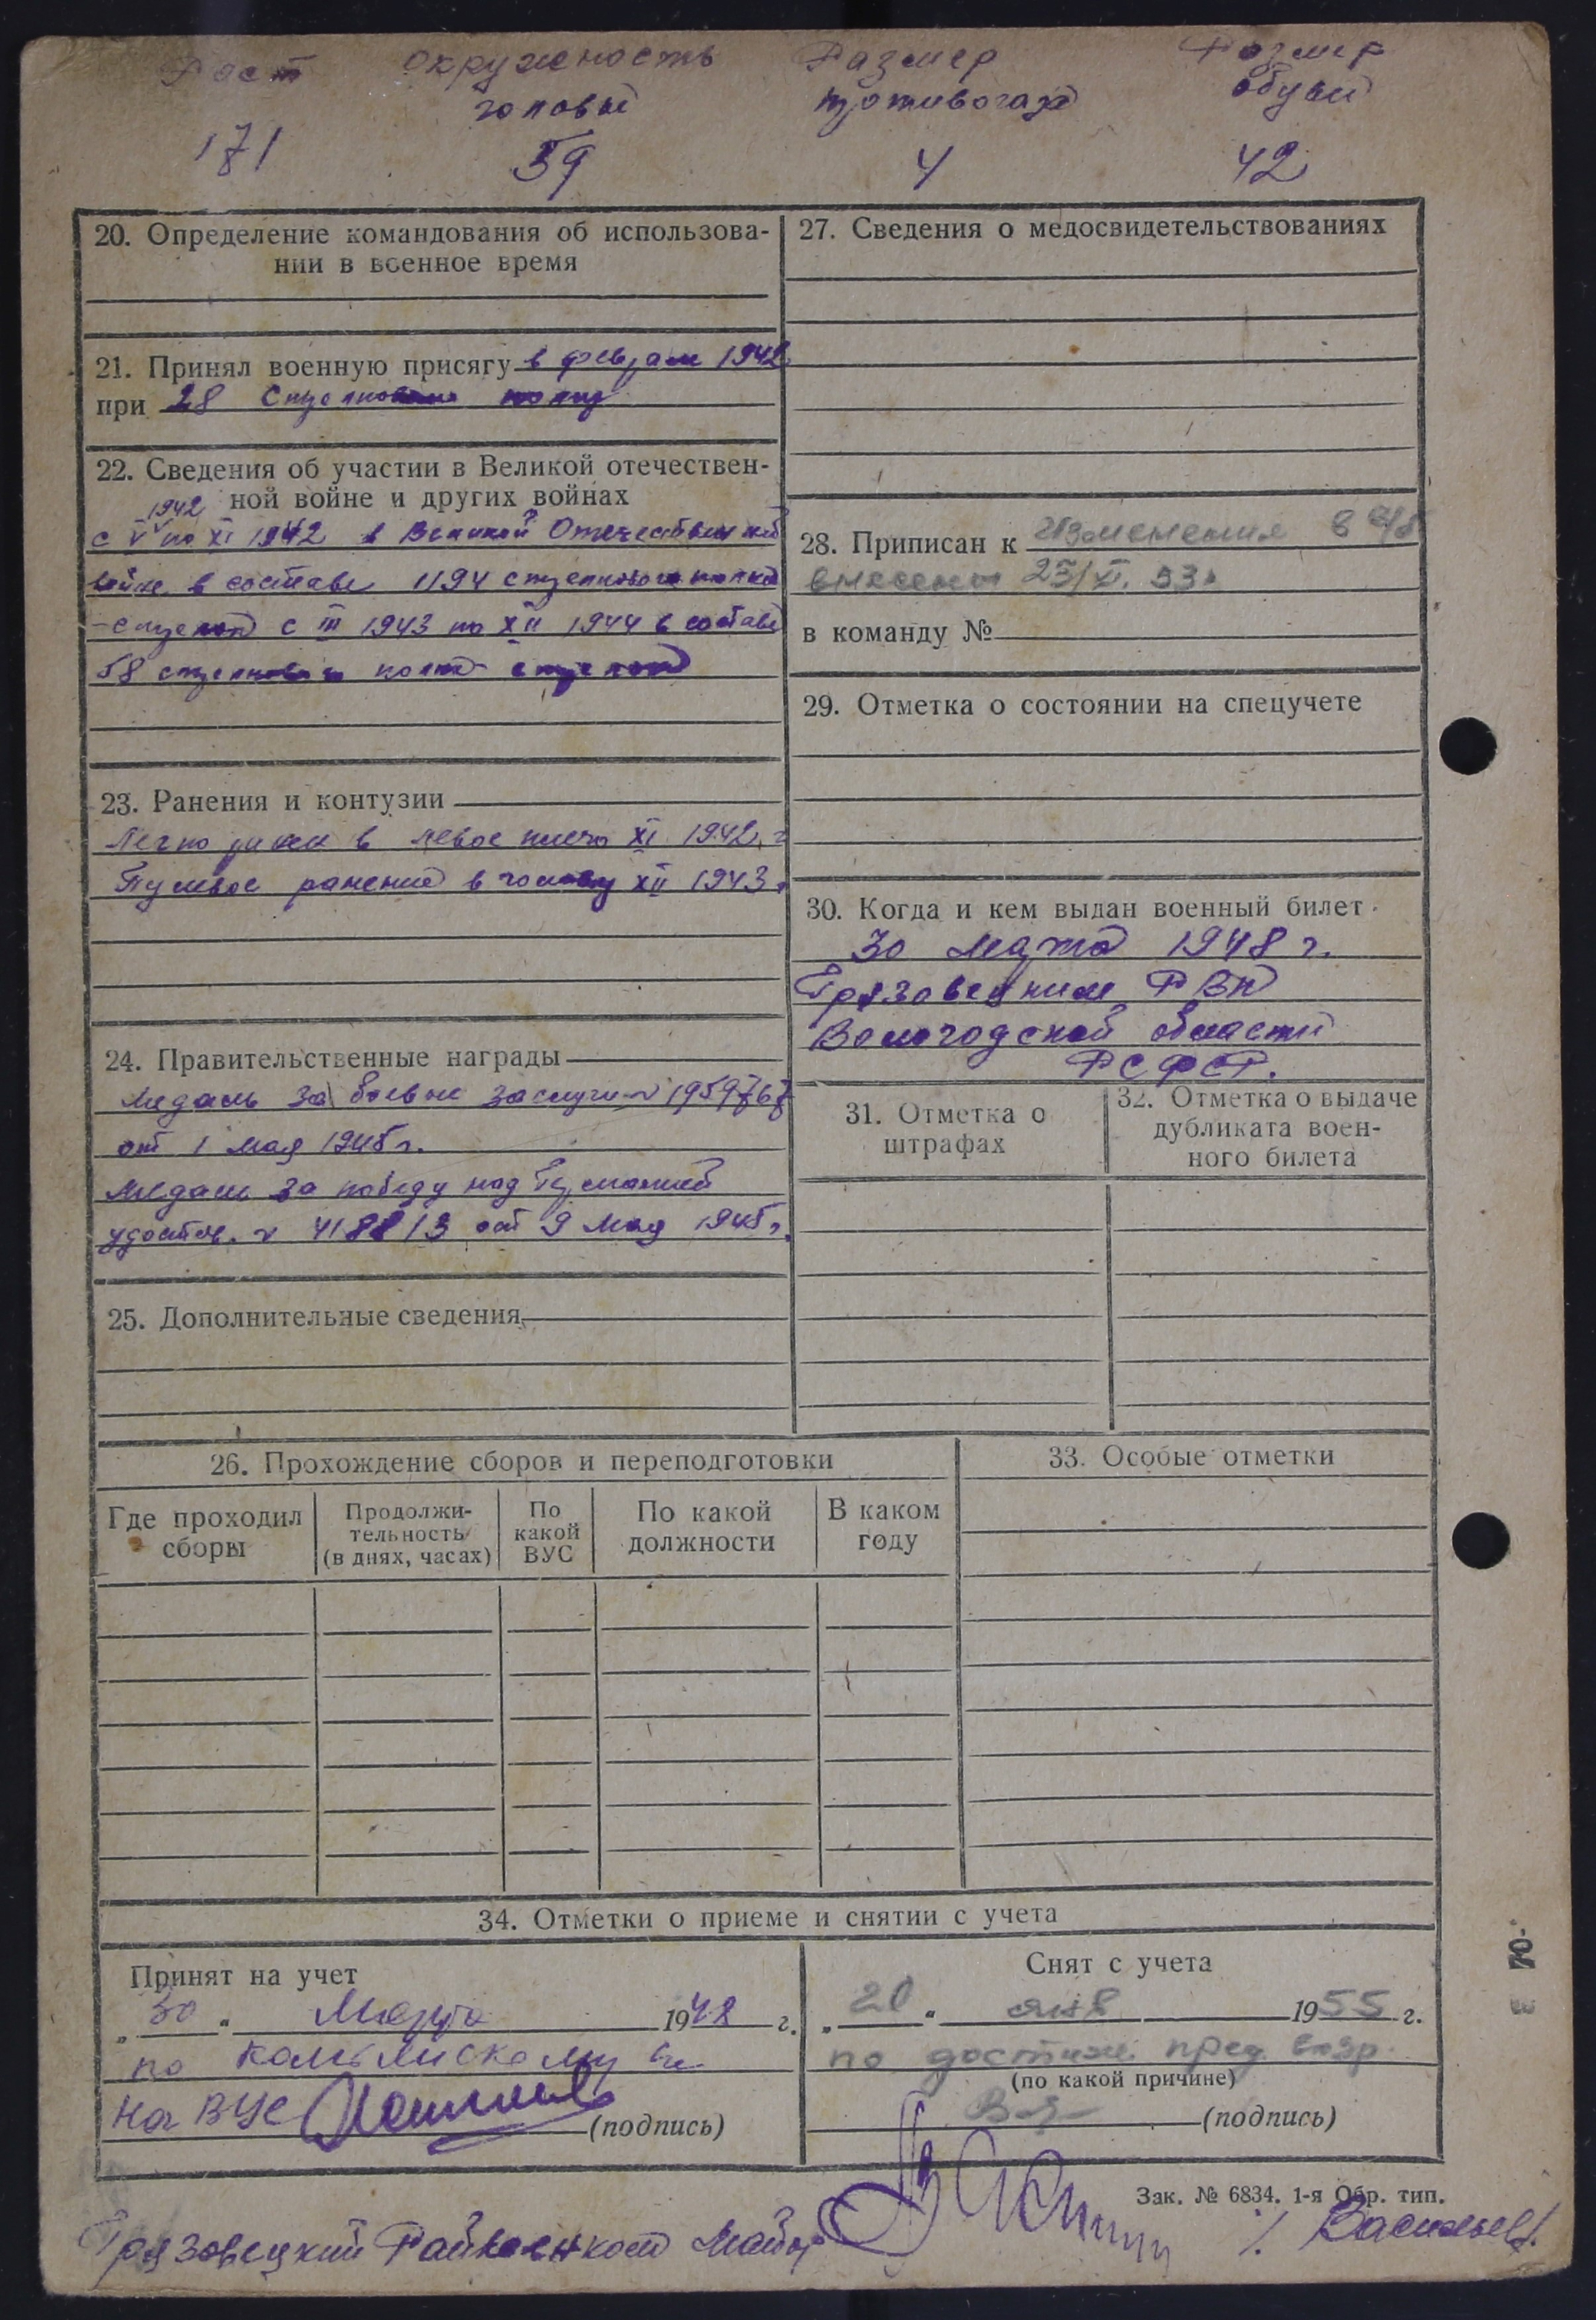 Рост окружность Размер Размер
головы противогаза обуви
171 59 4 42
20. Определение командования об использова-
нии в военное время
21. Принял военную присягу в феврале 1942
при 28 Стрелковом полку
22. Сведения об участии в Великой отечествен-
ной войне и других войнах
1942
с V по XI 1942 в Великой Отечественной
войне в составе 1194 стрелкового полка
-стрелок с III 1943 по XII 1944 в составе
58 стрелкового полка стрелок
23. Ранения и контузии
Легко ранен в левое плечо XI 1942 г
Пулевое ранение в голову XII 1943.
24. Правительственные награды
Медаль За боевые заслуги № 1959767
от 1 мая 1945 г.
Медаль За победу над Германией
удостов. № 418813 от 9 мая 1945 г.
25. Дополнительные сведения
26. Прохождение сборов и переподготовки
Где проходил сборы
Продолжи-
тельность
(в днях, часах)
По какой ВУС
По какой должности
В каком году
27. Сведения о медосвидетельствованиях
28. Приписан к Изменения в
внесены 25/XI. 53г
в команду №
29. Отметка о состоянии на спецучете
30. Когда и кем выдан военный билет
30 Марта 1948 г.
Грязовецким РВК
Вологодской области
РСФСР.
31. Отметка о
штрафах
32. Отметка о выдаче
дубликата воен-
ного билета
33. Особые отметки
34. Отметки о приеме и снятии с учета
Принят на учет
„30" Марта 1948 г.
по
на ВУС (подпись)
Снят с учета
„20" янв 1955 г.
по достиж. пред. возр.
(по какой причине)
(подпись)
Зак. № 6834. 1-я Обр. тип.
Грязовецкий Райвоенком Майор